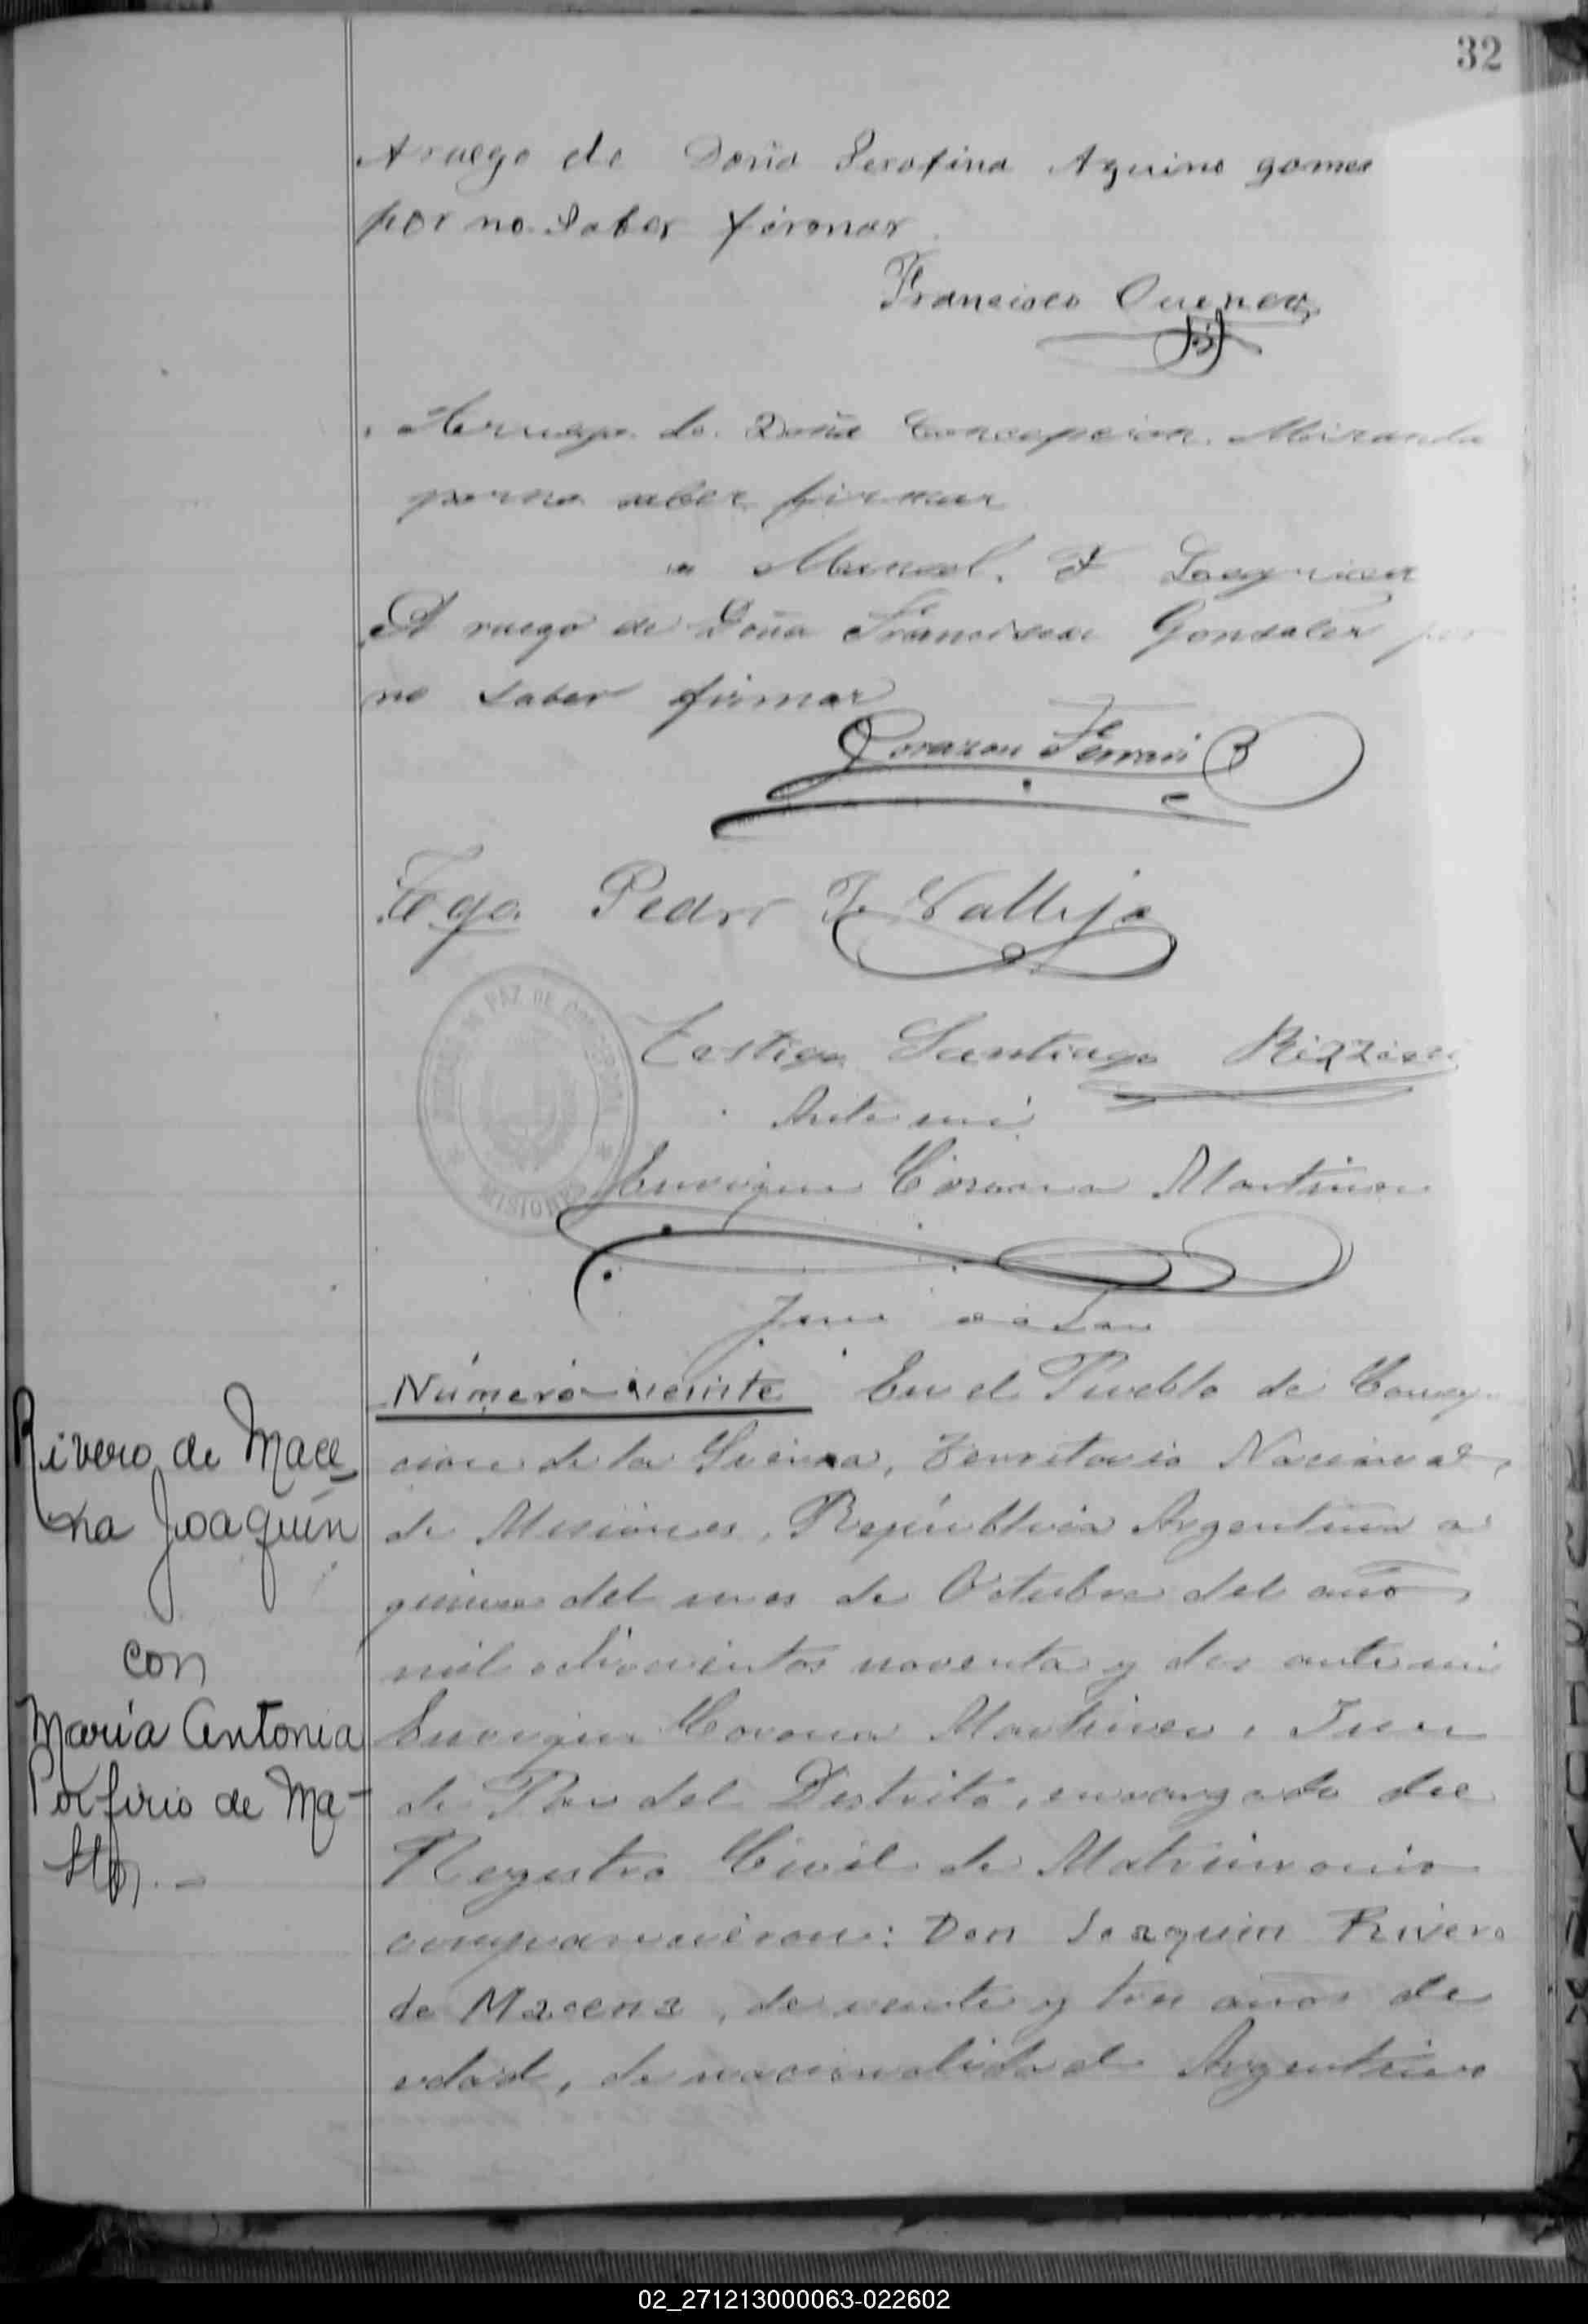 32
A ruego de Doña Serofina Aquino gomes
por no Saber firmar
Francisco Cuenca
A ruego de Doña Concepcion Miranda
por no saber firmar
Manuel. F
A ruego de Doña Francisca Gonsalez por
no saber firmar
Corazon Ferrari
Tgo. Pedro F Vallejo
PAZ DE
MISIONES
Testigo Santiago
Ante mi
Enrique Corona Martinez
Juez de Paz
Número veinte En el Pueblo de Concep
cion de la Sierra, Territorio Nacional
de Misiones, República Argentina a
quince del mes de Octubre del año
mil ochocientos noventa y dos ante mi
Enrique Corona Martinez, Juez
de Paz del Distrito, encargado del
Registro Civil de Matrimonio
comparecieron: Don Joaquin Rivero
de Macena, de veinte y tres años de
edad, de nacionalidad Argentino
Rivero de Mace
na Joaquín
con
María Antonia
Porfirio de Ma-
ttos.-
02_271213000063-022602